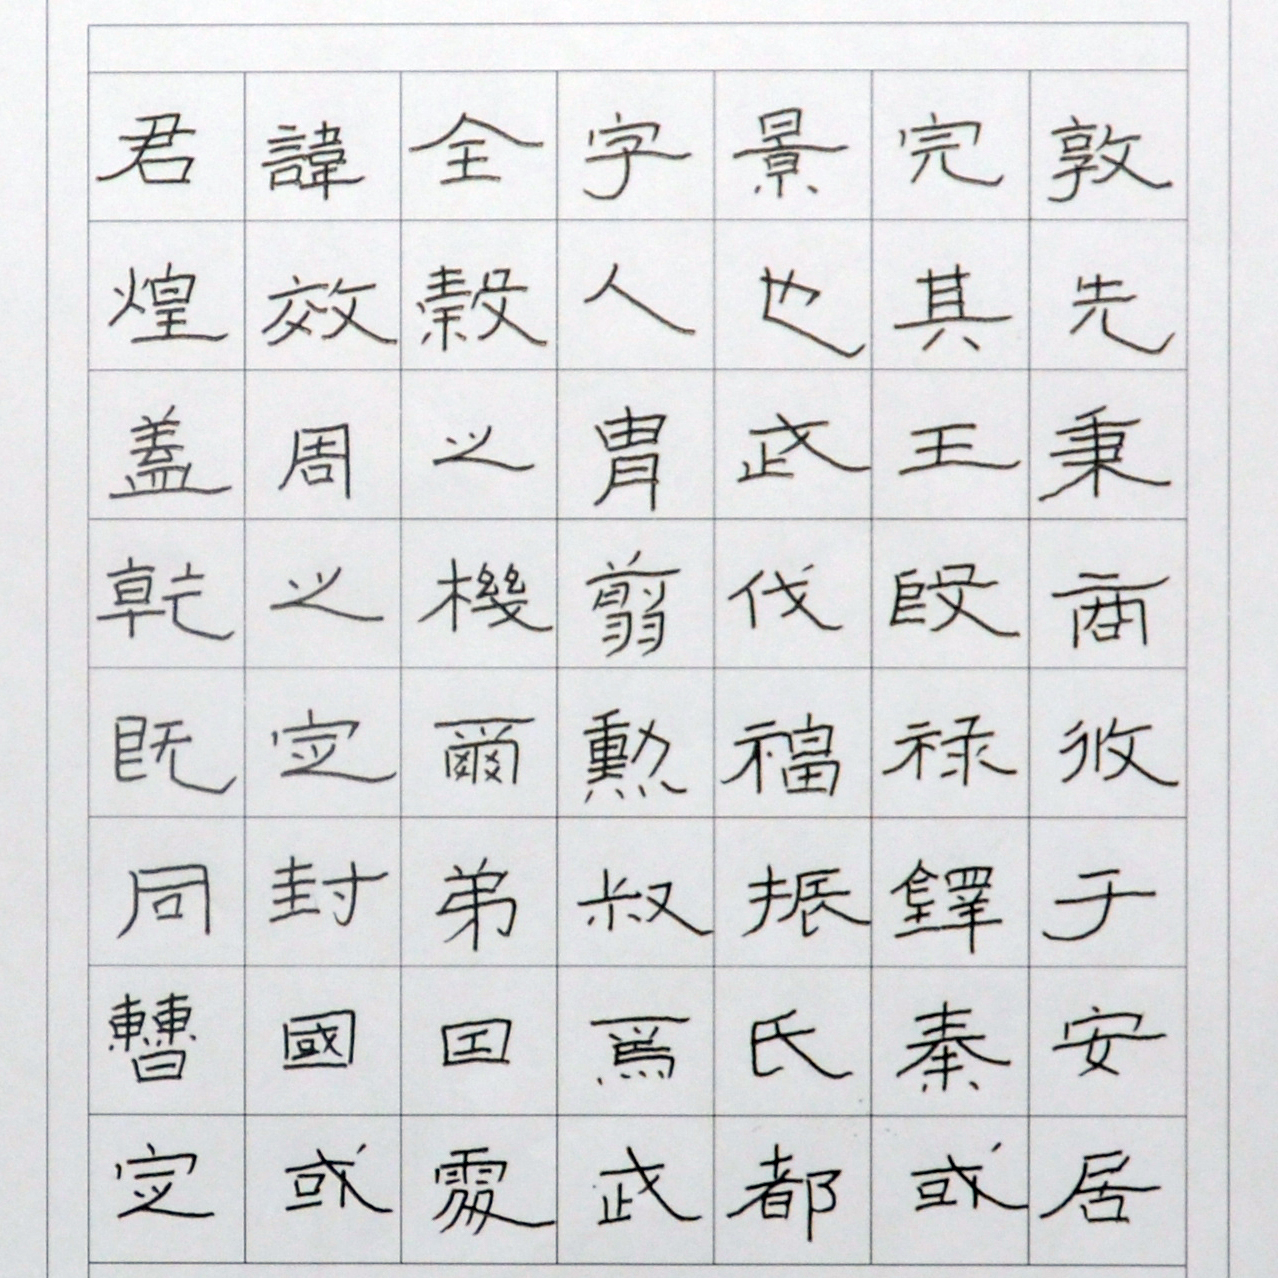 君諱全字景完敦
煌效穀人也其先
蓋周之胄武王秉
乾之機翦伐殷商
既定爾勳福禄攸
同封弟叔振鐸于
曹國因焉氏秦安
定或處武都或居